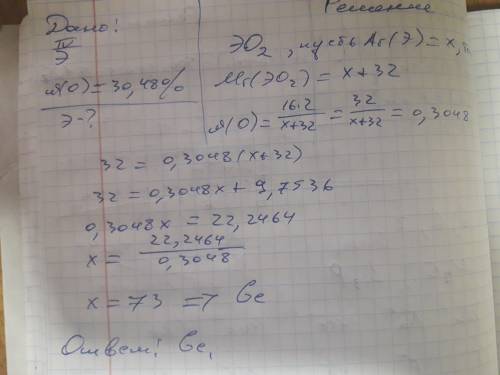 Дано:
IV
Э
ω(O)=30,48%
Э-?
Решение
ЭO₂, пусть Ar(Э)=x,
Mr(ЭO₂)=x+32
ω(O)=16·2/x+32=32/x+32=0,3048
32=0,3048(x+32)
32=0,3048x+9,7536
0,3048x=22,2464
x=22,2464/0,3048
x=73 => Ge
Ответ: Ge.